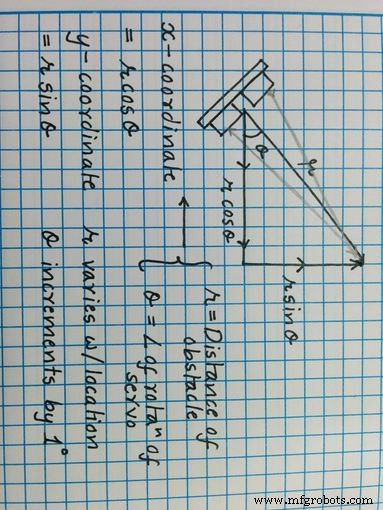 θ
r
r cosθ
r sinθ
r = Distance of
obstacle
θ = ∠ of rotaⁿ of
servo
x-coordinate
= rcosθ
y-coordinate
= rsinθ
r varies w/location
θ increments by 1°
www.mfgrobots.com